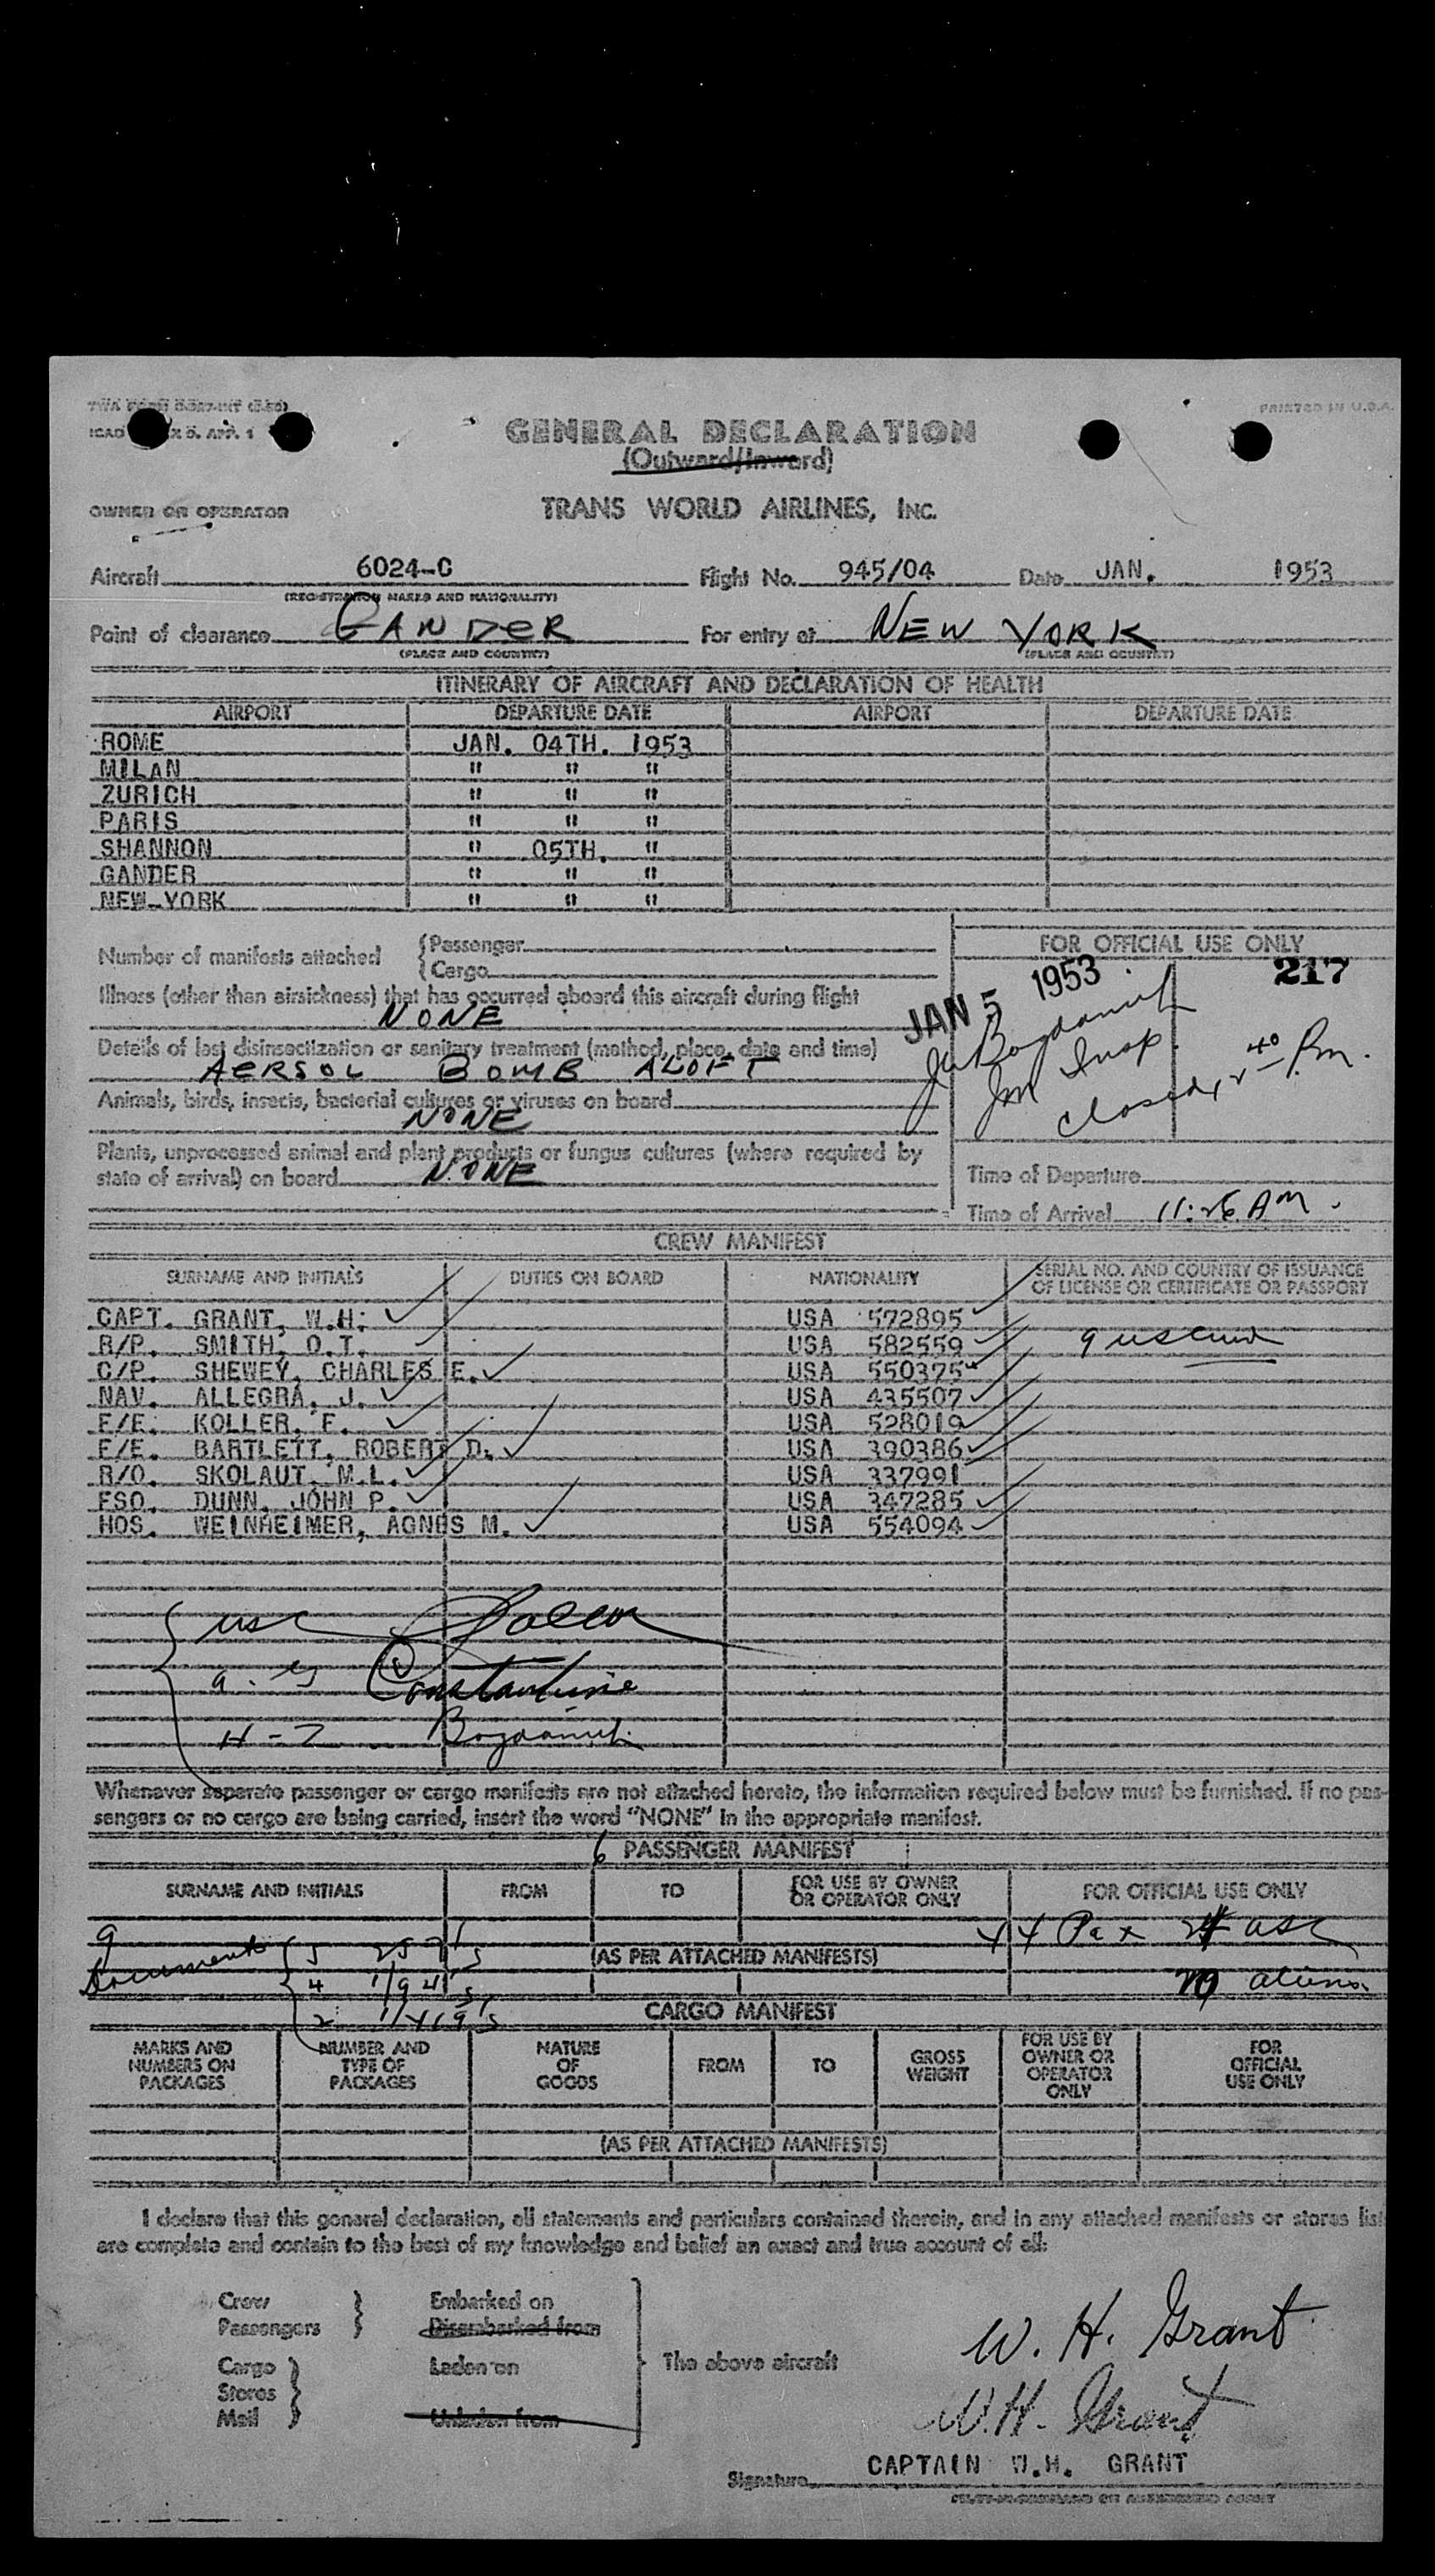 PRINTED IN U.S.A.
GENERAL DECLARATION
(Outward/Inward)
OWNER OR OPERATOR
TRANS WORLD AIRLINES, INC.
Aircraft 6024-C Flight No. 945/04 Date JAN. 1953
(REGISTRATION MARKS AND NATIONALITY)
Point of clearance GANDER For entry at NEW YORK
(PLACE AND COUNTRY) (PLACE AND COUNTRY)
ITINERARY OF AIRCRAFT AND DECLARATION OF HEALTH
AIRPORT DEPARTURE DATE AIRPORT DEPARTURE DATE
ROME JAN. 04TH. 1953
MILAN " " "
ZURICH " " "
PARIS " " "
SHANNON " 05TH. "
GANDER " " "
NEW-YORK " " "
Number of manifests attached {Passenger
{Cargo
FOR OFFICIAL USE ONLY
JAN 5 1953 217
Illness (other than airsickness) that has occurred aboard this aircraft during flight
NONE
Details of last disinsectization or sanitary treatment (method, place, date and time)
AERSOL BOMB ALOFT
Animals, birds, insects, bacterial cultures or viruses on board
NONE
Plants, unprocessed animal and plant products or fungus cultures (where required by
state of arrival) on board NONE
Bogdanich
Im Insp.
closed, 2 40 P.m.
Time of Departure
Time of Arrival 11:26 AM.
CREW MANIFEST
SURNAME AND INITIALS DUTIES ON BOARD NATIONALITY SERIAL NO. AND COUNTRY OF ISSUANCE
OF LICENSE OR CERTIFICATE OR PASSPORT
CAPT. GRANT, W.H. USA 572895
R/P. SMITH, O.T. USA 582559
C/P. SHEWEY, CHARLES E. USA 550375
NAV. ALLEGRA, J. USA 435507
E/E. KOLLER, F. USA 528019
E/E. BARTLETT, ROBERT D. USA 390386
R/O. SKOLAUT, M.L. USA 337991
FSO. DUNN, JOHN P. USA 347285
HOS. WEINHEIMER, AGNES M. USA 554094
usc
Constantine
H-Z Bogdanich
Whenever separate passenger or cargo manifests are not attached hereto, the information required below must be furnished. If no pas-
sengers or no cargo are being carried, insert the word "NONE" in the appropriate manifest.
6 PASSENGER MANIFEST
SURNAME AND INITIALS FROM TO FOR USE BY OWNER
OR OPERATOR ONLY FOR OFFICIAL USE ONLY
9 44 Pax usc
Documents (AS PER ATTACHED MANIFESTS)
aliens
CARGO MANIFEST
MARKS AND
NUMBERS ON
PACKAGES NUMBER AND
TYPE OF
PACKAGES NATURE
OF
GOODS FROM TO GROSS
WEIGHT FOR USE BY
OWNER OR
OPERATOR
ONLY FOR
OFFICIAL
USE ONLY
(AS PER ATTACHED MANIFESTS)
I declare that this general declaration, all statements and particulars contained therein, and in any attached manifests or stores list
are complete and contain to the best of my knowledge and belief an exact and true account of all:
Crew Embarked on
Passengers Disembarked from
Cargo Laden on The above aircraft
Stores
Mail Unladen from
W. H. Grant
W. H. Grant
CAPTAIN W.H. GRANT
Signature
PILOT-IN-COMMAND OR AUTHORIZED AGENT